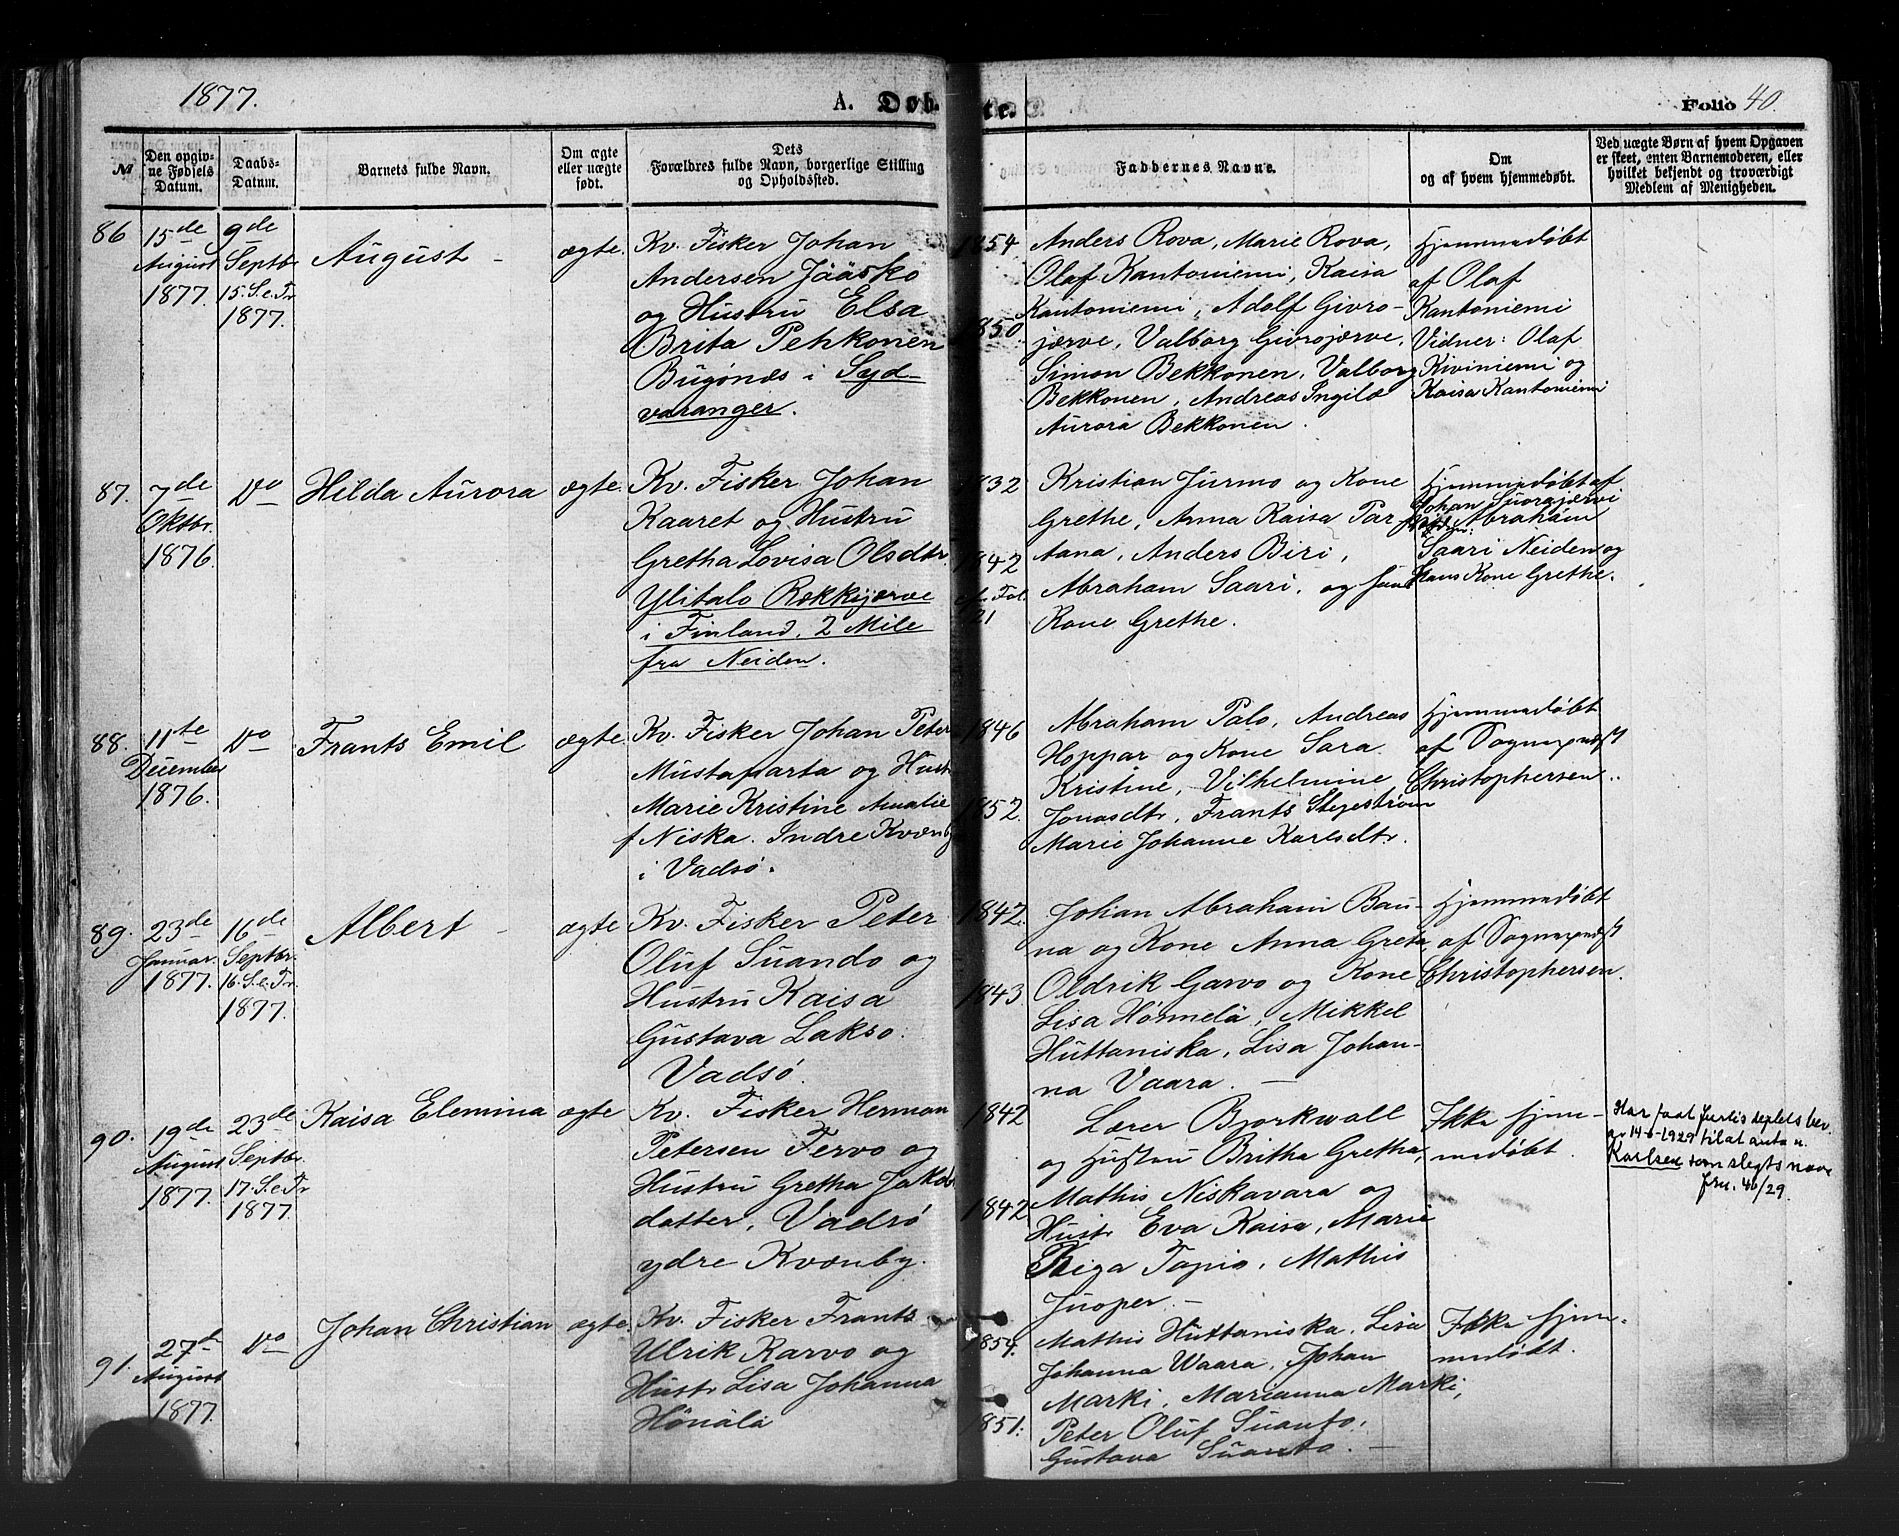 1877.
A. Døb
te.
Folio 40.
№
Den opgiv-
ne Fødsels
Datum.
Daabs-
Datum.
Barnets fulde Navn.
Om ægte
eller uægte
født.
Dets
Forældres fulde Navn, borgerlige Stilling
og Opholdssted.
Faddernes Navne.
Om
og af hvem hjemmedøbt.
Ved uægte Børn af hvem Opgaven
er skeet, enten Barnemoderen, eller
hvilket bekjendt og troværdigt
Medlem af Menigheden.
86
15de
August
1877.
9de
Septbr
15. S. e. Tr.
1877.
August
ægte.
Kv. Fisker Johan
Andersen Jääsko
og Hustru Elsa
Brita Pehkonen
Bugönæs i Syd-
varanger.
1854
1850
Anders Rova, Marie Rova,
Olaf Kantoniemi, Kaisa
Kantoniemi, Adolf Givro-
jærve, Valborg Givrojærve,
Simon Bekkonen, Valborg
Bekkonen, Andreas Ingilæ
Aurora Bekkonen.
Hjemmedøbt
af Olaf
Kantoniemi
Vidner: Olaf
Kiviniemi og
Kaisa Kantoniemi
87.
7de
Oktbr.
1876.
Do
Hilda Aurora
ægte.
Kv. Fisker Johan
Kaaret og Hustru
Gretha Lovisa Olsdtr.
Ylitalo Rækkijærve
i Finland, 2 Mile
fra Neiden.
832
1842
Fol.
21
Kristian Jurmo og Kone
Grethe, Anna Kaisa Par-
tana, Anders Biri,
Abraham Saari, og
Kone Grethe.
Hjemmedøbt af
Johan Suorajærvi
Abraham
Saari Neiden og
Hans Kone Grethe.
88.
11te
December
1876.
Do
Frants Emil
ægte.
Kv. Fisker Johan Peter
Mustaparta og Hust
Marie Kristine Amalie
f Niska. Indre Kvænby
i Vadsö.
1846
1852.
Abraham Palo, Andreas
Hoppar og Kone Sara
Kristine, Vilhelmine
Jonasdtr, Frants Stegestrøm
Marie Johanne Karlsdtr.
Hjemmedøbt
af Sognepræst
Christophersen.
89.
23de
Januar.
1877.
16de
Septbr.
16. S. e. Tr
1877.
Albert
ægte
Kv. Fisker Peter
Oluf Suando og
Hustru Kaisa
Gustava Lakso.
Vadsö.
1842.
1843.
Johan Abraham Bau-
na og Kone Anna Greta
Oldrik Garvo og Kone
Lisa Hönnelä, Mikkel
Huttaniska, Lisa Johan-
na Vaara.
Hjemmedøbt
af Sognepræst
Christophersen.
90.
19de
August
1877.
23de
Septbr.
17. S. e. Tr
1877.
Kaisa Elemina
ægte
Kv. Fisker Herman
Petersen Fervo og
Hustru Gretha Jakob
datter, Vadsö
ydre Kvænby.
1842
1842
Lærer Bjorkwall
og Hustru Britha Gretha,
Mathis Niskavara og
Hustr Eva Kaisa, Marie
Reiga Tapio, Mathis
Juoper.
Ikke hjem-
medøbt.
Har faat Justisdeptets bev.
av 14-6-1929 til at anta n.
Karlsen som slegtsnavn
jrn. 40/29.
91.
27de
August
1877.
Do
Johan Christian
ægte.
Kv. Fisker Frants
Ulrik Karvo og
Hustr Lisa Johanna
Hönälä
1854.
1851.
Mathis Huttaniska, Lisa
Johanna Waara, Johan
Marki, Marianna Marki,
Peter Oluf Suanto,
Gustava Suanto.
Ikke hjem-
medøbt.